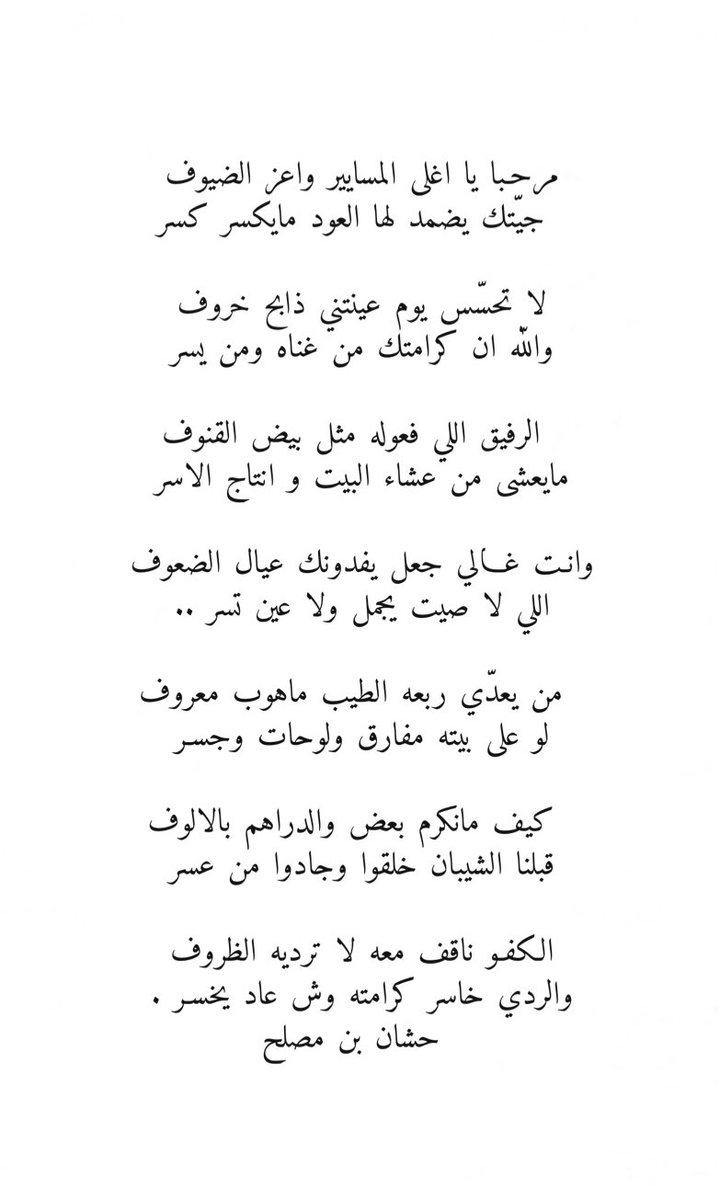 مرحبا يا اغلى المسايير واعز الضيوف
جيّتك يضمد لها العود مايكسر كسر
لا تحسّس يوم عينتني ذابح خروف
والله ان كرامتك من غناه ومن يسر
الرفيق اللي فعوله مثل بيض القنوف
مايعشى من عشاء البيت و انتاج الاسر
وانت غالي جعل يفدونك عيال الضعوف
اللي لا صيت يجمل ولا عين تسر ..
من يعدّي ربعه الطيب ماهوب معروف
لو على بيته مفارق ولوحات وجسر
كيف مانكرم بعض والدراهم بالالوف
قبلنا الشيبان خلقوا وجادوا من عسر
الكفو ناقف معه لا ترديه الظروف
والردي خاسر كرامته وش عاد يخسر .
حشان بن مصلح